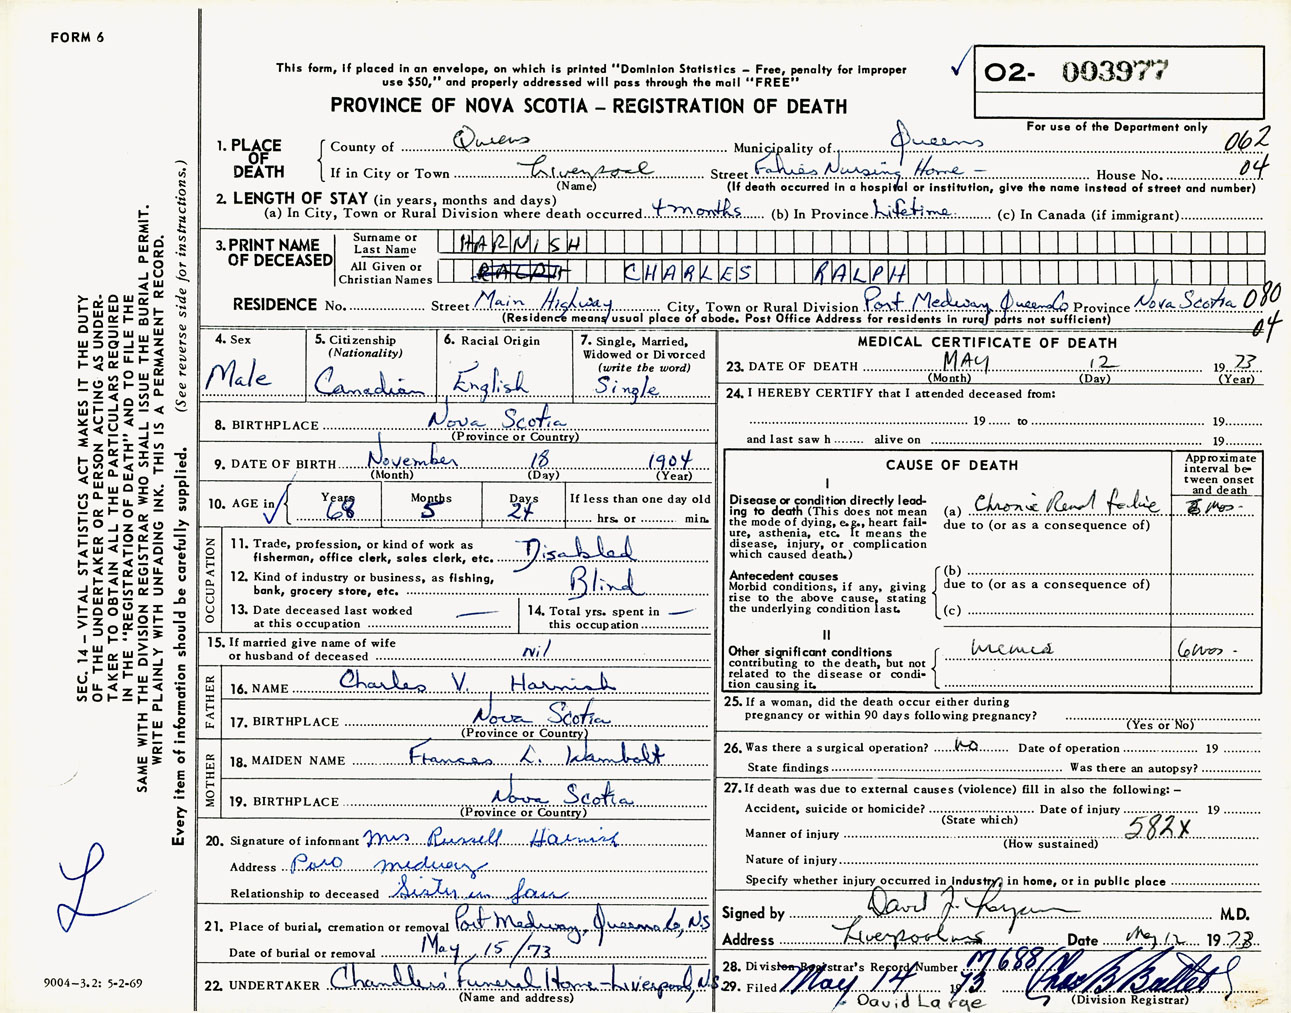 FORM 6
This form, if placed in an envelope, on which is printed "Dominion Statistics – Free, penalty for improper
use $50," and properly addressed will pass through the mail "FREE"
PROVINCE OF NOVA SCOTIA – REGISTRATION OF DEATH
✓ O2- 003977
For use of the Department only
062
04
1. PLACE OF DEATH
County of Queens Municipality of Queens
If in City or Town Liverpool Street Fahies Nursing Home – House No.
(Name) (If death occurred in a hospital or institution, give the name instead of street and number)
2. LENGTH OF STAY (in years, months and days)
(a) In City, Town or Rural Division where death occurred 4 months (b) In Province Lifetime (c) In Canada (if immigrant)
3. PRINT NAME OF DECEASED
Surname or Last Name HARNISH
All Given or Christian Names RALPH CHARLES RALPH
RESIDENCE No. Street Main Highway City, Town or Rural Division Port Medway Queens Co Province Nova Scotia 080
(Residence means usual place of abode. Post Office Address for residents in rural parts not sufficient)
04
4. Sex
Male
5. Citizenship
(Nationality)
Canadian
6. Racial Origin
English
7. Single, Married,
Widowed or Divorced
(write the word)
Single
8. BIRTHPLACE Nova Scotia
(Province or Country)
9. DATE OF BIRTH November 18 1904
(Month) (Day) (Year)
10. AGE in ✓ Years Months Days If less than one day old
68 5 24 hrs. or min.
OCCUPATION
11. Trade, profession, or kind of work as
fisherman, office clerk, sales clerk, etc. Disabled
12. Kind of industry or business, as fishing,
bank, grocery store, etc. Blind
13. Date deceased last worked
at this occupation —
14. Total yrs. spent in
this occupation —
15. If married give name of wife
or husband of deceased Nil
FATHER
16. NAME Charles V. Harnish
17. BIRTHPLACE Nova Scotia
(Province or Country)
MOTHER
18. MAIDEN NAME Frances L. Wambolt
19. BIRTHPLACE Nova Scotia
(Province or Country)
20. Signature of informant Mrs Russell Harnish
Address Port Medway
Relationship to deceased Sister in law
21. Place of burial, cremation or removal Port Medway, Queens Co, NS
Date of burial or removal May 15/73
22. UNDERTAKER Chandlers' Funeral Home – Liverpool, N.S
(Name and address)
MEDICAL CERTIFICATE OF DEATH
23. DATE OF DEATH MAY 12 19 73
(Month) (Day) (Year)
24. I HEREBY CERTIFY that I attended deceased from:
19 to 19
and last saw h alive on 19
CAUSE OF DEATH
Approximate
interval be-
tween onset
and death
I
Disease or condition directly lead-
ing to death (This does not mean
the mode of dying, e.g., heart fail-
ure, asthenia, etc. It means the
disease, injury, or complication
which caused death.)
(a) Chronic Renal failure 6 mos -
due to (or as a consequence of)
Antecedent causes
Morbid conditions, if any, giving
rise to the above cause, stating
the underlying condition last.
(b)
due to (or as a consequence of)
(c)
II
Other significant conditions
contributing to the death, but not
related to the disease or condi-
tion causing it.
6 mos -
25. If a woman, did the death occur either during
pregnancy or within 90 days following pregnancy?
(Yes or No)
26. Was there a surgical operation? No Date of operation 19
State findings Was there an autopsy?
27. If death was due to external causes (violence) fill in also the following: –
Accident, suicide or homicide? Date of injury 19
(State which)
Manner of injury 582X
(How sustained)
Nature of injury
Specify whether injury occurred in industry, in home, or in public place
Signed by David J. M.D.
Address Liverpool NS Date May 12 19 73
28. Division Registrar's Record Number M 688
29. Filed May 14 1973
(Division Registrar)
David Large
SEC. 14 – VITAL STATISTICS ACT MAKES IT THE DUTY
OF THE UNDERTAKER OR PERSON ACTING AS UNDER-
TAKER TO OBTAIN ALL THE PARTICULARS REQUIRED
IN THE "REGISTRATION OF DEATH" AND TO FILE THE
SAME WITH THE DIVISION REGISTRAR WHO SHALL ISSUE THE BURIAL PERMIT.
WRITE PLAINLY WITH UNFADING INK. THIS IS A PERMANENT RECORD.
Every item of information should be carefully supplied. (See reverse side for instructions.)
L
9004-3.2: 5-2-69